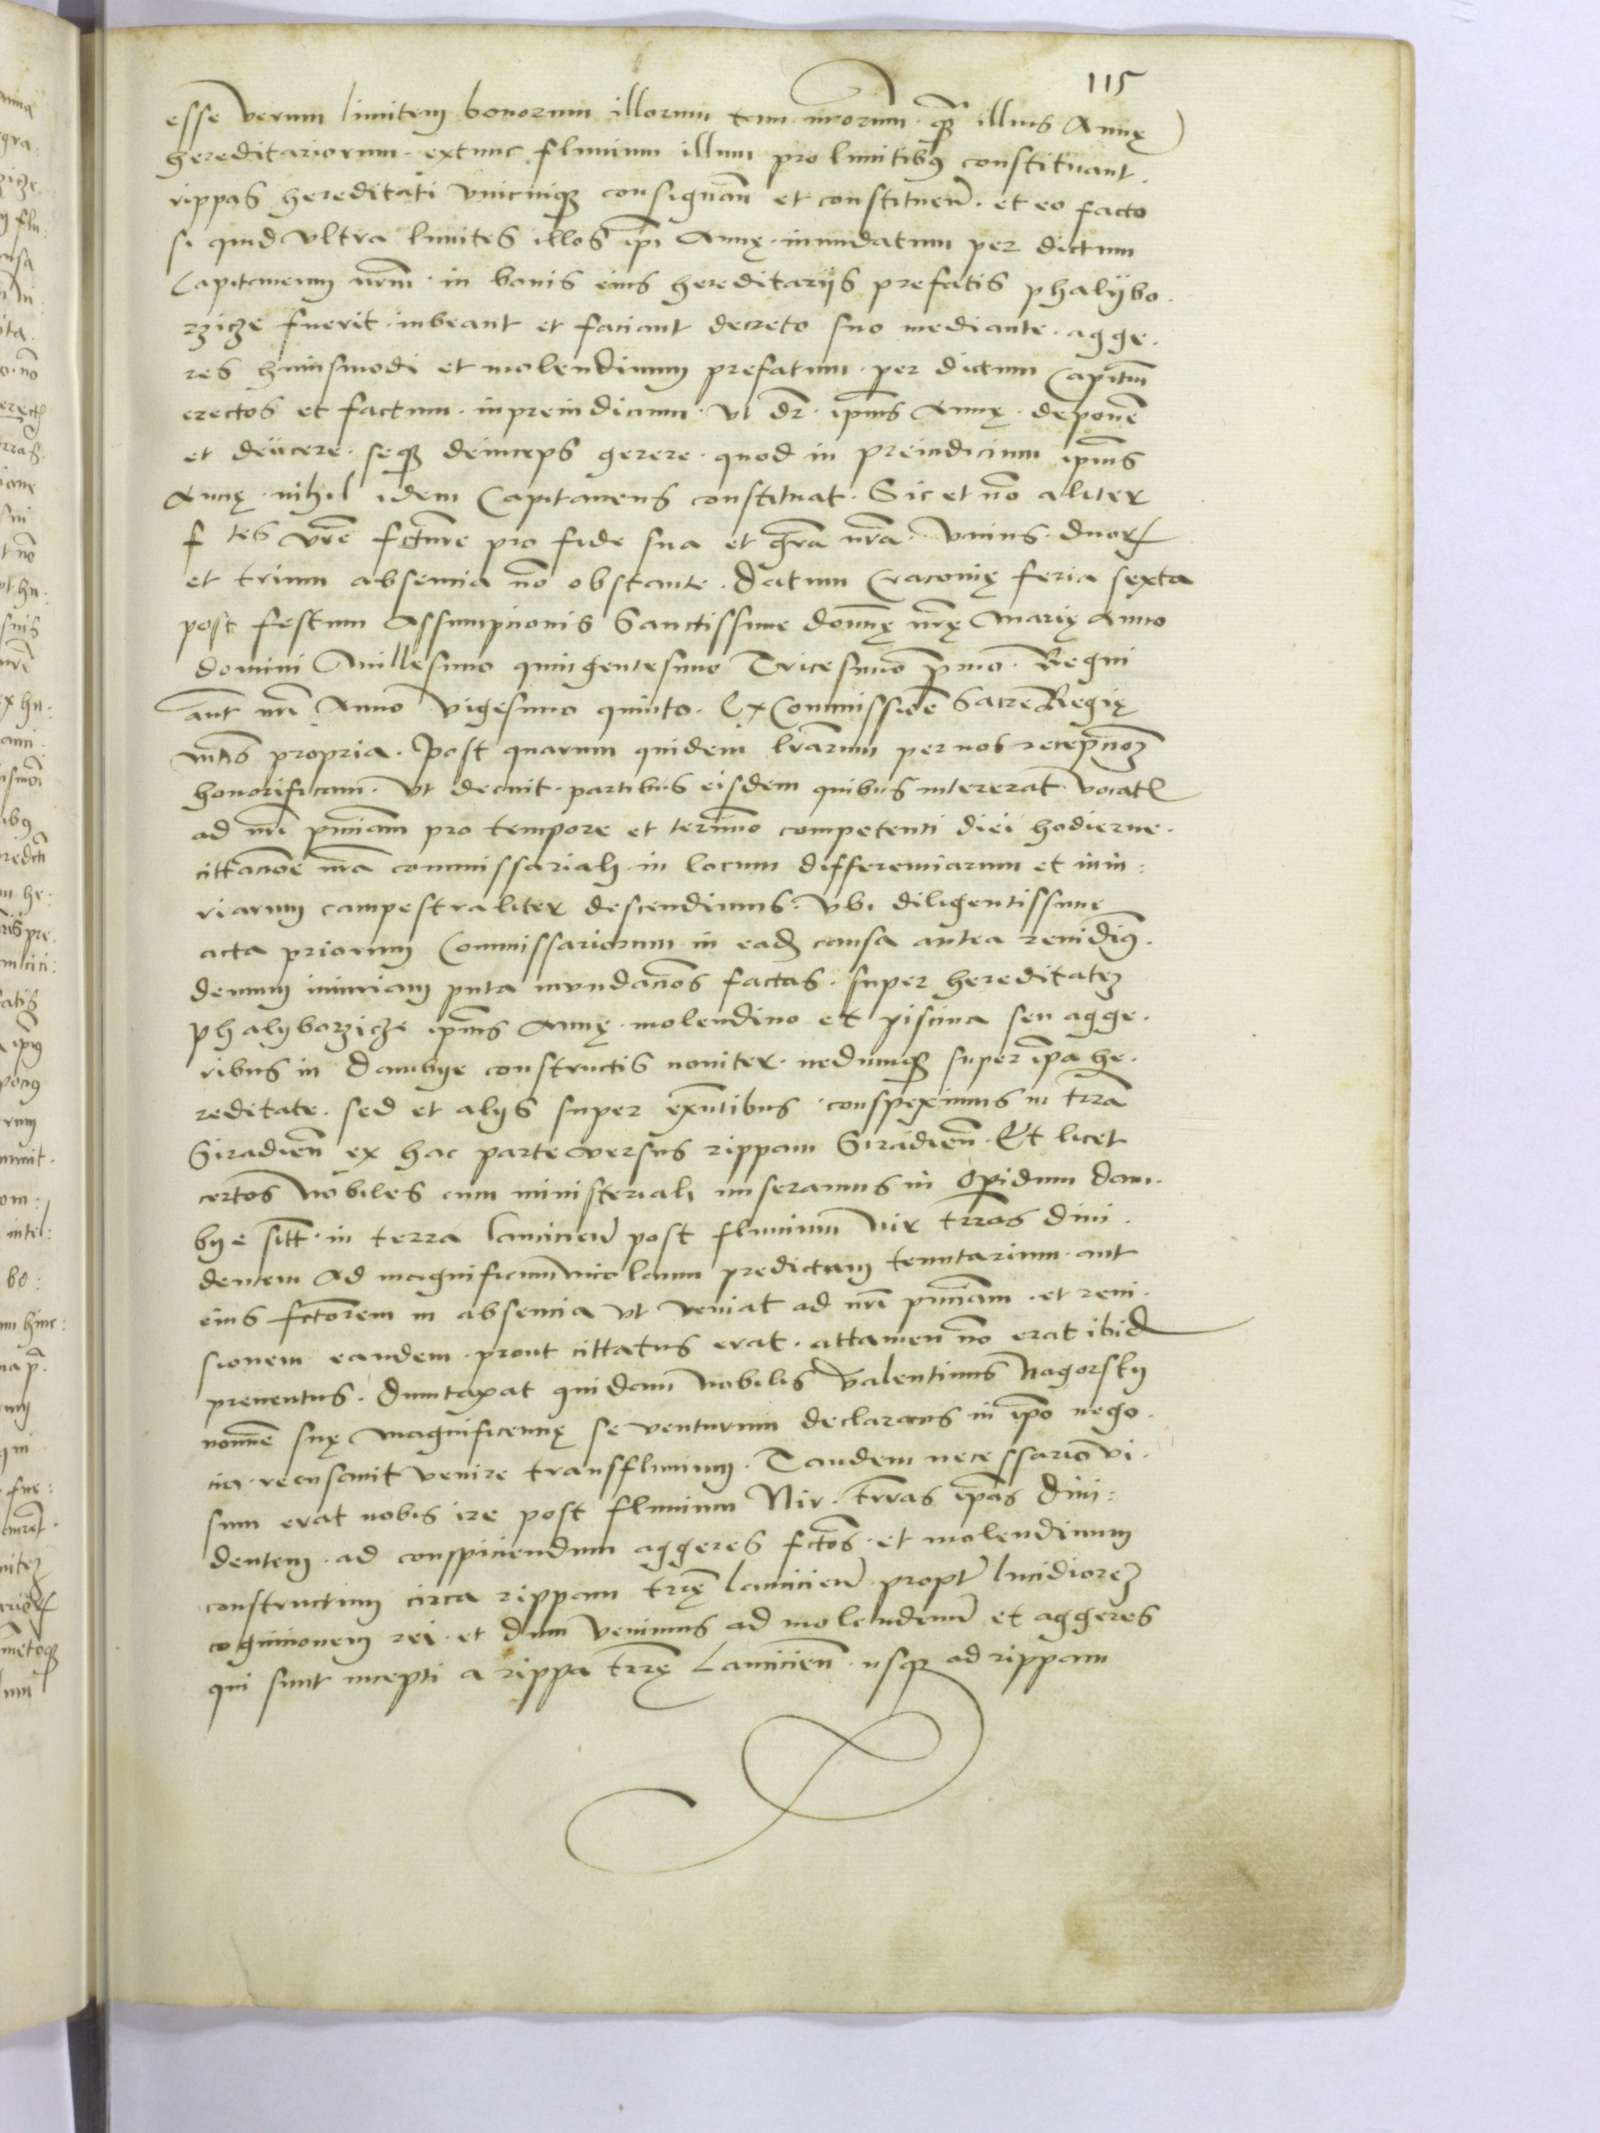 115
esse verum limitem bonorum illorum tam nr̄orum qꝫ illius Annę
hereditariorum. extunc fluvium illum pro limitibꝰ constituant.
rippas hereditati unicuiqꝫ consignan̄ et constituen̄. et eo facto
si quid ultra limites illos ip̄i Annę. inundatum per dictum
Capitaneum nr̄m. in bonis eius hereditarijs prefatis phalijbo.
rzicze fuerit. iubeant et faciant decreto suo mediante. agge.
res huiusmodi et molendinum prefatum. per dictum Capitm̄
erectos et factum. in preiudicium. ut dr̄. ip̄ius Annę. deponē
et deijcere. seqꝫ deinceps gerere. quod in preiudicium ip̄ius
Annę. nihil idem Capitaneus constituat. Sic et nō aliter
f tes vr̄e fctur̄e pro fide sua et gr̄a nr̄a. Unius. duorꝝ
et trium absencia nō obstante. Datum Cracovię feria sexta
post festum Assumpcionis Sanctissime domn̄ę nr̄ę Marię Anno
domini Millesimo quingentesimo Tricesimo p̄mo. Regni
aut̄ nr̄i Anno vigesimo quinto. Ex Commissiōe Sacre Regię
mt̄is propria. Post quarum quidem lr̄arum per nos recepcioꝫ
honorificam. ut decuit. partibus eisdem quibus intererat. vocatꝭ
ad nr̄i pn̄ciam pro tempore et termīo competenti diei hodierne.
cittaciōe nr̄a commissariali. in locum differenciarum et iniu:
riarum campestraliter descendimus. Ubi diligentissime
acta priorum Commissariorum in eadꝫ causa antea revidimꝰ.
demum iniuriam puta inundaciōs factas. super hereditateꝫ
phalyborzicze ip̄ius Annę. molendino et piscina seu agge.
ribus in Dambye constructis noviter. nedumqꝫ super ip̄a he.
reditate. sed et alijs super exn̄tibus. conspeximus in trr̄a
Siradien̄ ex hac parte versus rippam Siradien̄. Et licet
certos nobiles cum ministeriali miseramus in Opidum dam.
bye sitt̄. in terra Lancicien̄ post fluvium Nir trr̄as divi.
dentem ad magnificum Nicolaum predictum tenutarium. aut
eius fctorem in absencia ut veniat ad nr̄i pn̄ciam. et revi.
sionem eandem. prout cittatus erat. attamen nō erat ibidꝫ
preventus. dumtaxat quidam nobilis Valentinus Nagorskij
nomīe suę magnificencię se venturum declarans in ip̄o nego.
cio. recusavit venire transfluvium. Tandem necessario vi.
sum erat nobis ire post fluvium Nir. trr̄as ip̄as divi:
dentem. ad conspiciendum aggeres fctos. et molendinum
constructum circa rippam trr̄ę Lancicien̄ propt̄ lucidioreꝫ
cognicionem rei. et dum venimus ad molendinū et aggeres
qui sunt incepti a rippa trr̄ę Lancicien̄. usqꝫ ad rippam